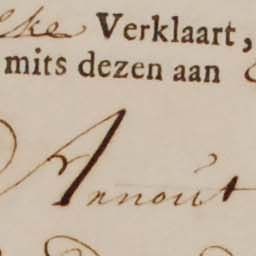 Verklaart,
mits dezen aan
Arnout